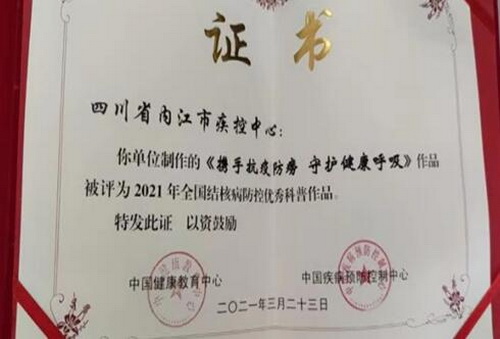 证书
四川省内江市疾控中心：
你单位制作的《携手抗疫防痨 守护健康呼吸》作品
被评为2021年全国结核病防控优秀科普作品。
特发此证 以资鼓励
中国健康教育中心 中国疾病预防控制中心
二〇二一年三月二十三日